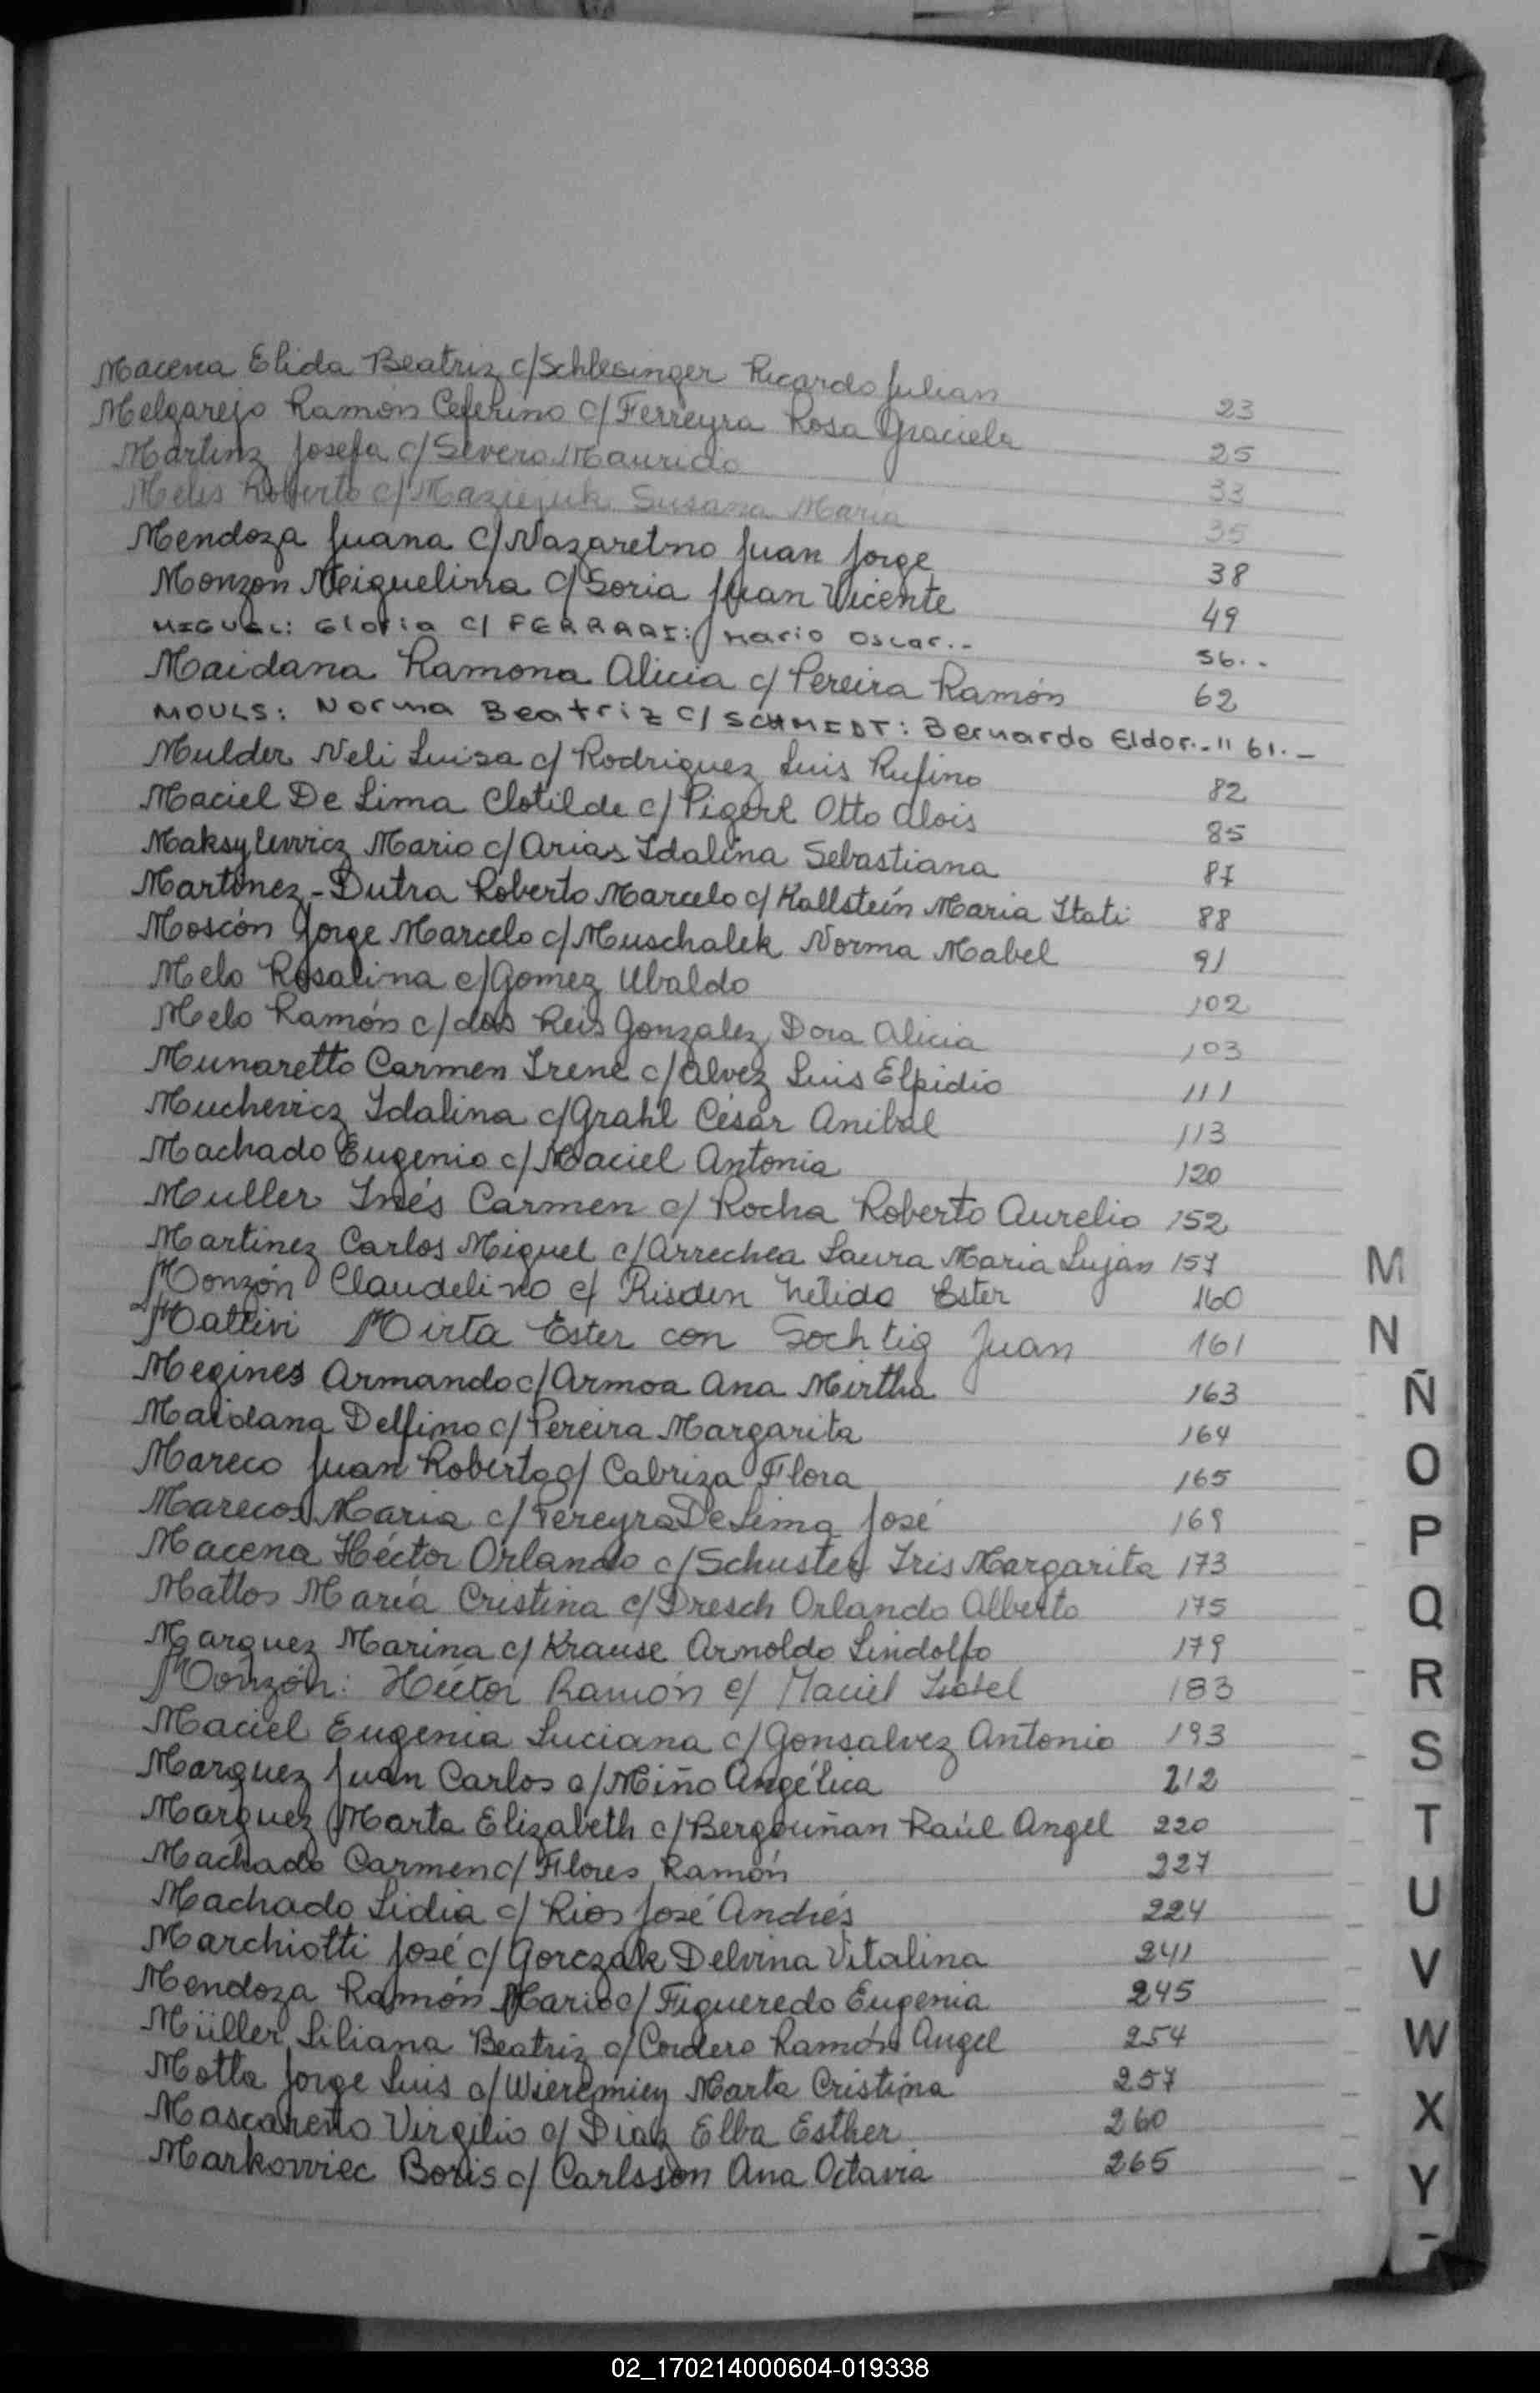 Macena Elida Beatriz c/Schlesinger Ricardo Julian 23
Melgarejo Ramón Ceferino c/Ferreyra Rosa Graciela 25
Martinz Josefa c/Severo Mauricio 33
Melis Roberto c/Maziejuk Susana Maria 35
Mendoza Juana c/Nazaretno Juan Jorge 38
Monzon Meiguelina c/Soria Juan Vicente 49
MIGUEL: Gloria c/ FERRARI: Mario Oscar.-- 56.--
Maidana Ramona Alicia c/ Pereira Ramón 62
MOULS: Norma Beatriz c/ SCHMIDT: Bernardo Eldor.-" 61.-
Mulder Neli Luisa c/ Rodriguez Luis Rufino 82
Maciel De Lima Clotilde c/ Pigerl Otto Alois 85
Maksylewicz Mario c/ Arias Idalina Sebastiana 87
Martinez-Dutra Roberto Marcelo c/ Kallstein Maria Itati 88
Moscón Jorge Marcelo c/Muschalek Norma Mabel 91
Melo Rosalina c/Gomez Ubaldo 102
Melo Ramón c/dos Reis Gonzalez Dora Alicia 103
Munaretto Carmen Irene c/Alvez Luis Elpidio 111
Muchewicz Idalina c/Grahl César Anibal 113
Machado Eugenio c/Maciel Antonia 120
Muller Inés Carmen c/ Rocha Roberto Aurelio 152
Martinez Carlos Miguel c/Arrechea Laura Maria Lujan 157
Monzón Claudelino c/ Risden Nélida Ester 160
Mattivi Mirta Ester con Sochtig Juan 161
Megines Armando c/Armoa Ana Mirtha 163
Maidana Delfino c/Pereira Margarita 164
Mareco Juan Roberto c/ Cabriza Flora 165
Marecos Maria c/Pereyra De Lima José 169
Macena Héctor Orlando c/Schuster Iris Margarita 173
Mattos María Cristina c/Dresch Orlando Alberto 175
Marquez Marina c/Krause Arnoldo Lindolfo 179
Monzón: Héctor Ramón c/ Maciel Isabel 183
Maciel Eugenia Luciana c/Gonsalvez Antonio 193
Marquez Juan Carlos c/Miño Angélica 212
Marquez Marta Elizabeth c/Bergouñan Raúl Angel 220
Machado Carmen c/Flores Ramón 227
Machado Lidia c/ Rios José Andrés 224
Marchiotti José c/Gorczak Delvina Vitalina 241
Mendoza Ramón Mario c/Figueredo Eugenia 245
Müller Liliana Beatriz c/Cordero Ramón Angel 254
Motta Jorge Luis c/Wieremiey Marta Cristina 257
Mascareño Virgilio c/Diaz Elba Esther 260
Markowiec Boris c/ Carlsson Ana Octavia 265
M
N
Ñ
O
P
Q
R
S
T
U
V
W
X
Y
02_170214000604-019338